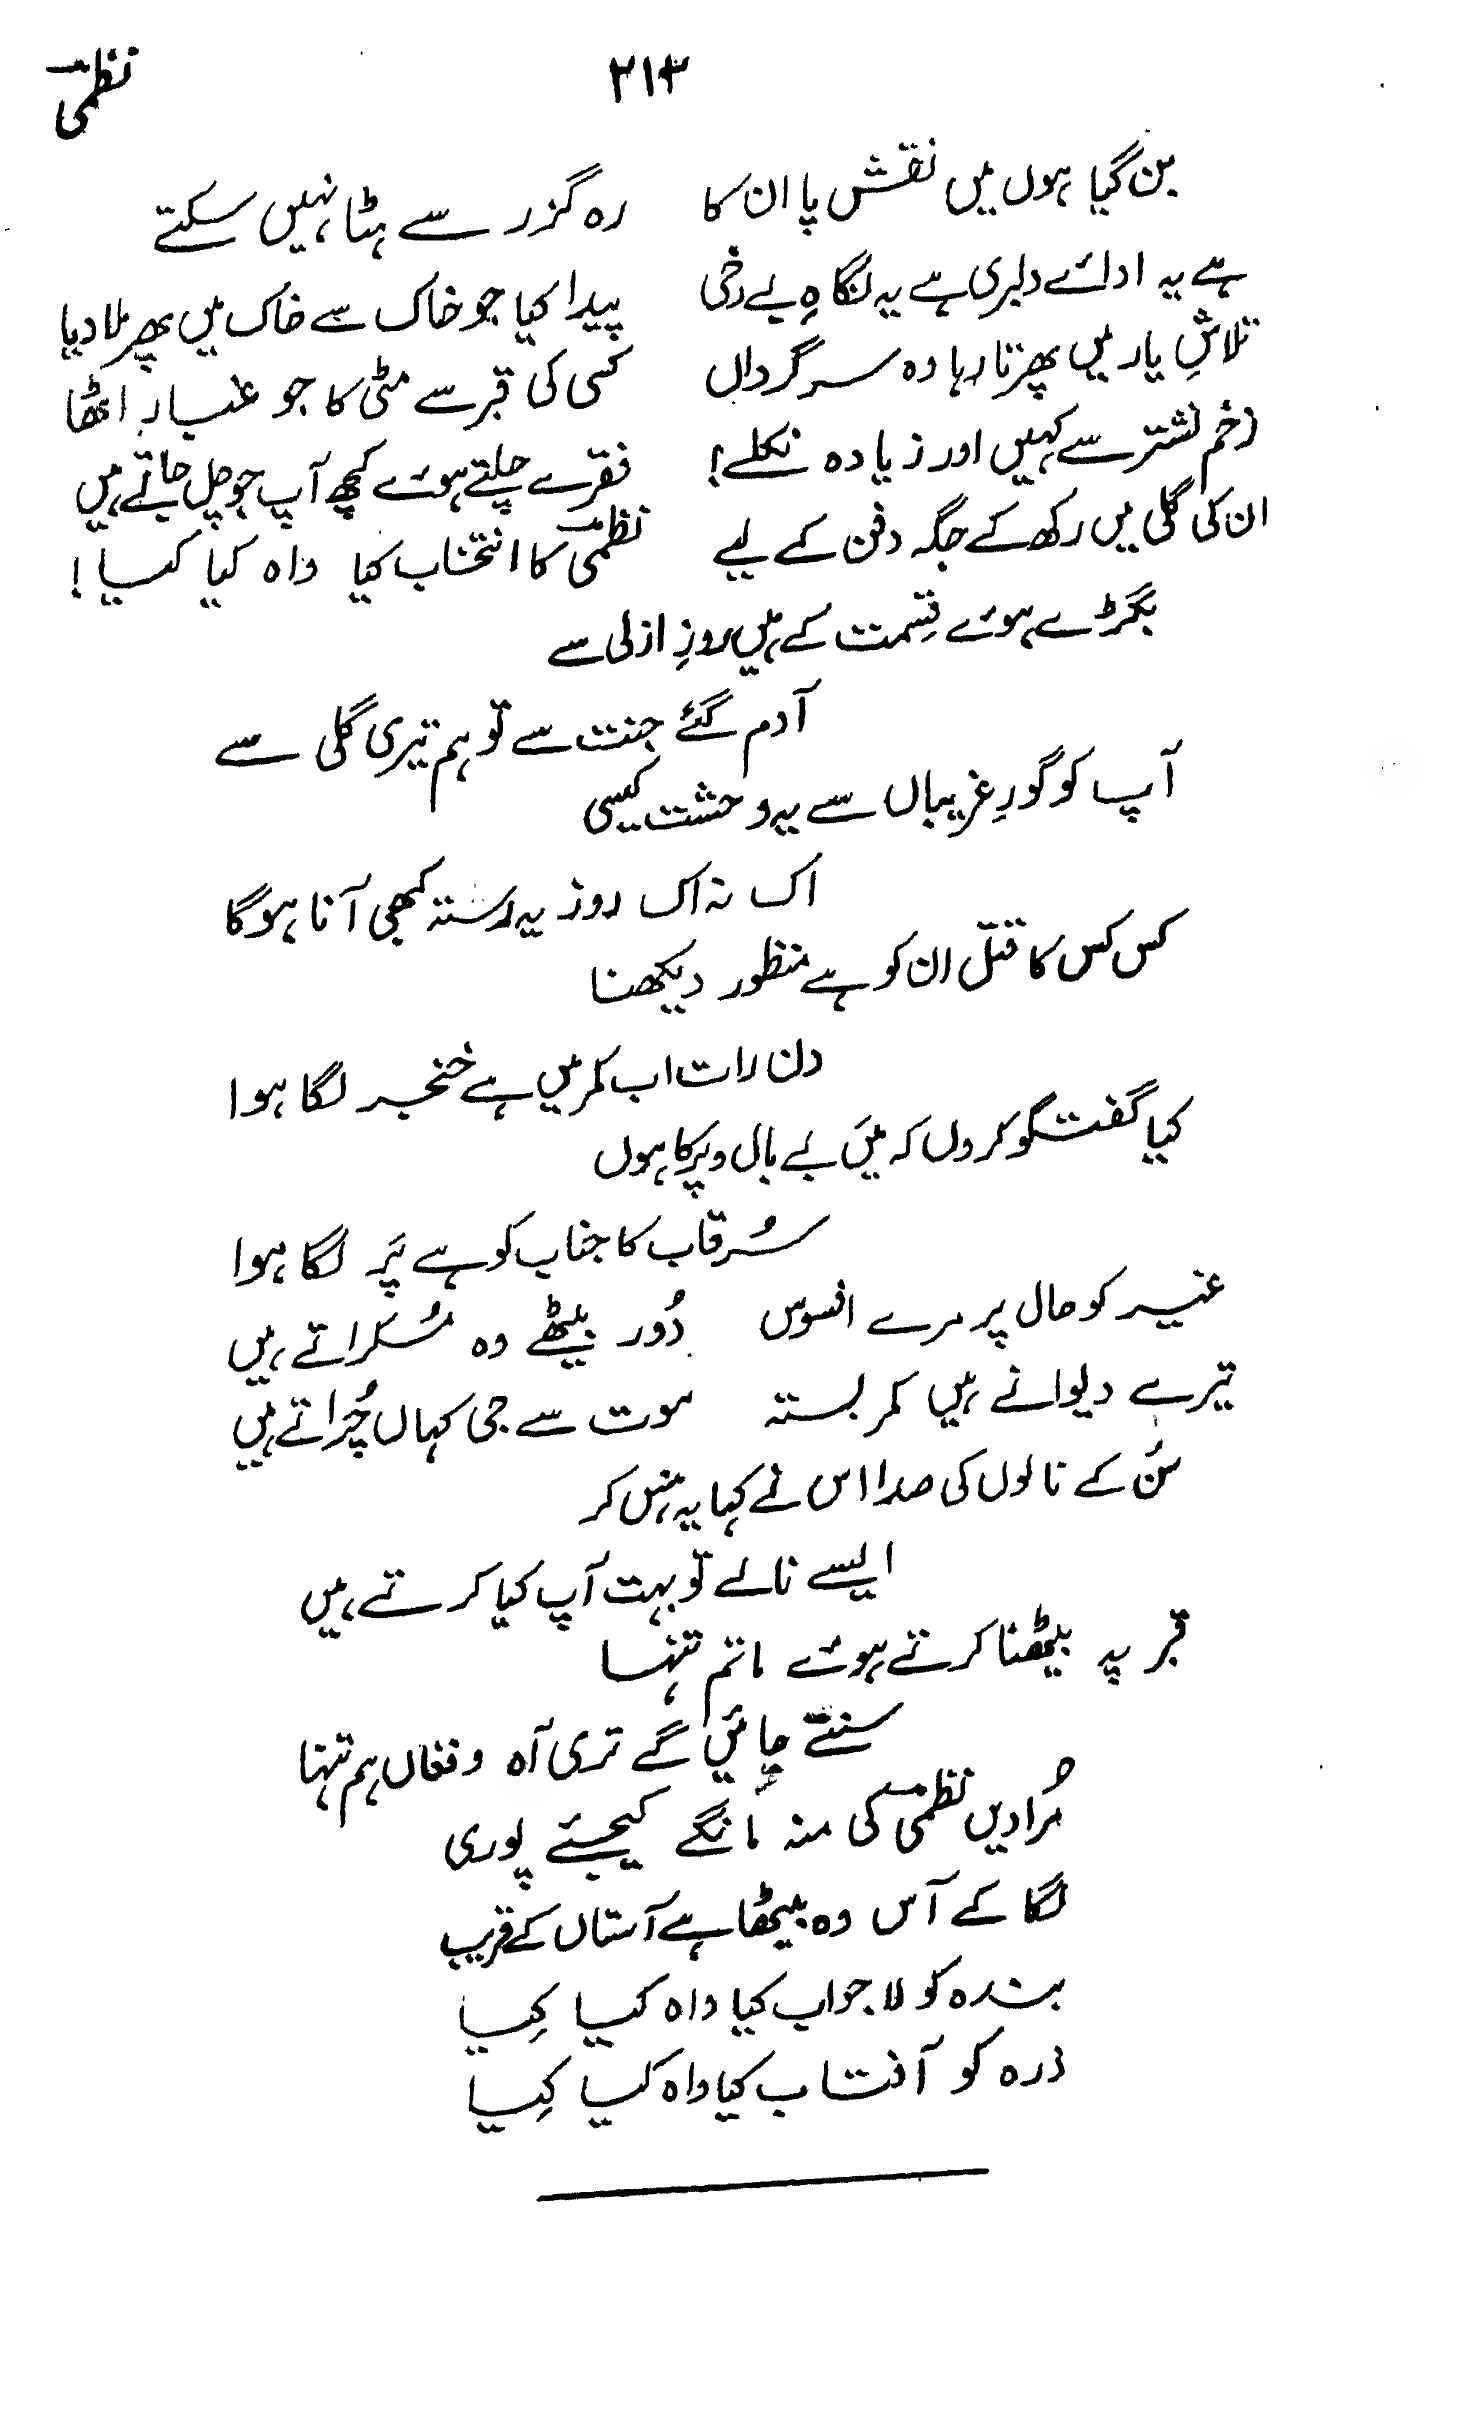 نظمیؔ
۲۱۳
بن گیا ہوں میں نقش پا ان کا رہ گزر سے ہٹا نہیں سکتے
ہے یہ ادائے دلبری ہے یہ نگاہِ بے رخی پیدا کیا جو خاک سے خاک میں پھر ملا دیا
تلاشِ یار میں پھرتا رہا وہ سرگرداں کسی کی قبر سے مٹی کا جو غبار اٹھا
زخم نشتر سے کہیں اور زیادہ نکلے! فقرے چلتے ہوئے کچھ آپ جو چل جاتے ہیں
ان کی گلی میں رکھ کے جگہ دفن کے لیے نظمیؔ کا انتخاب کیا واہ کیا کیا!
بگڑے ہوئے قسمت کے ہیں روزِ ازلی سے
آدم گئے جنت سے تو ہم تیری گلی سے
آپ کو گورِ غریباں سے یہ وحشت کیسی
اک نہ اک روز یہ رستہ کبھی آنا ہوگا
کس کس کا قتل ان کو ہے منظور دیکھنا
دن رات اب کمر میں ہے خنجر لگا ہوا
کیا گفتگو کروں کہ میں بے بال و پر کا ہوں
سُرقاب کا جناب کو ہے پَر لگا ہوا
غیر کو حال پر مرے افسوس دُور بیٹھے وہ مُسکراتے ہیں
تیرے دیوانے ہیں کمر بستہ موت سے جی کہاں چُراتے ہیں
سُن کے نالوں کی صدا اس نے کہا یہ ہنس کر
ایسے نالے تو بہت آپ کیا کرتے ہیں
قبر پہ بیٹھنا کرتے ہوئے ماتم تنہا
سنتے جائیں گے تری آہ و فغاں ہم تنہا
مُرادیں نظمیؔ کی منہ مانگے کیجئے پوری
لگا کے آس وہ بیٹھا ہے آستاں کے قریب
بندہ کو لاجواب کیا واہ کیا کِیا
ذرہ کو آفتاب کیا واہ کیا کِیا